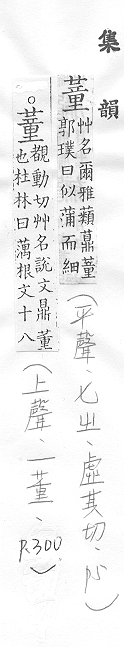 集韻
蕫艸名爾雅蘱薡蕫
郭璞曰似蒲而細
(平聲、七㞢、虛其切、P5)
○蕫覩動切艸名說文鼎蕫
也杜林曰蕅根文十八
(上聲、一董、P.300)